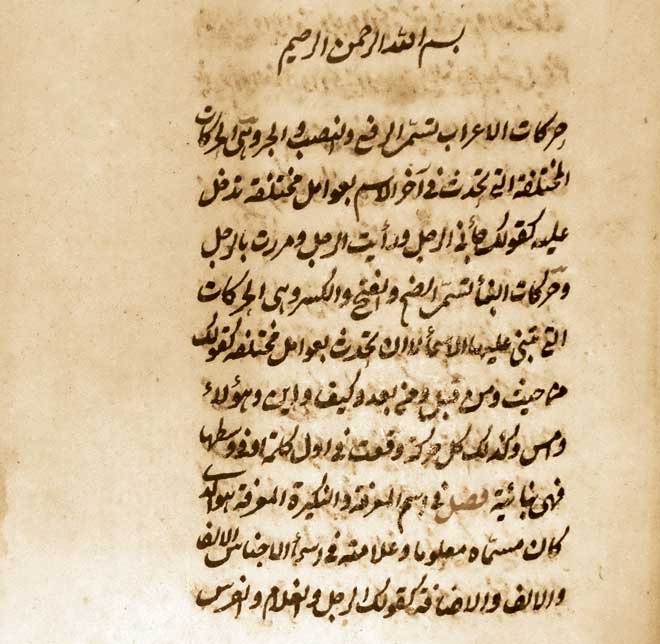 بسم الله الرحمن الرحيم
حركات الاعراب تسمى الرفع والنصب والجر وهى الحركات
المختلفة التى تحدث فى آخر الاسم بعوامل مختلفة تدخل
عليه كقولك جأنى الرجل ورأيت الرجل ومررت بالرجل
وحركات البنأ تسمى الضم والفتح والكسر وهى الحركات
التى تبنى عليها الاسمأ لا ان تحدث بعوامل مختلفة كقولك
من حيث ومن قبل ومن بعد وكيف واين وهؤلاء
وامس وكذلك كل حركة وقعت فى اول كلمة او فى وسطها
فهى بنائية فصل فى اسم المعرفة والنكرة المعرفة هو الذى
كان مسماه معلوما وعلامته فى اسمأ الاجناس الالف
والالف والاضافة كقولك الرجل والغلام والفرس